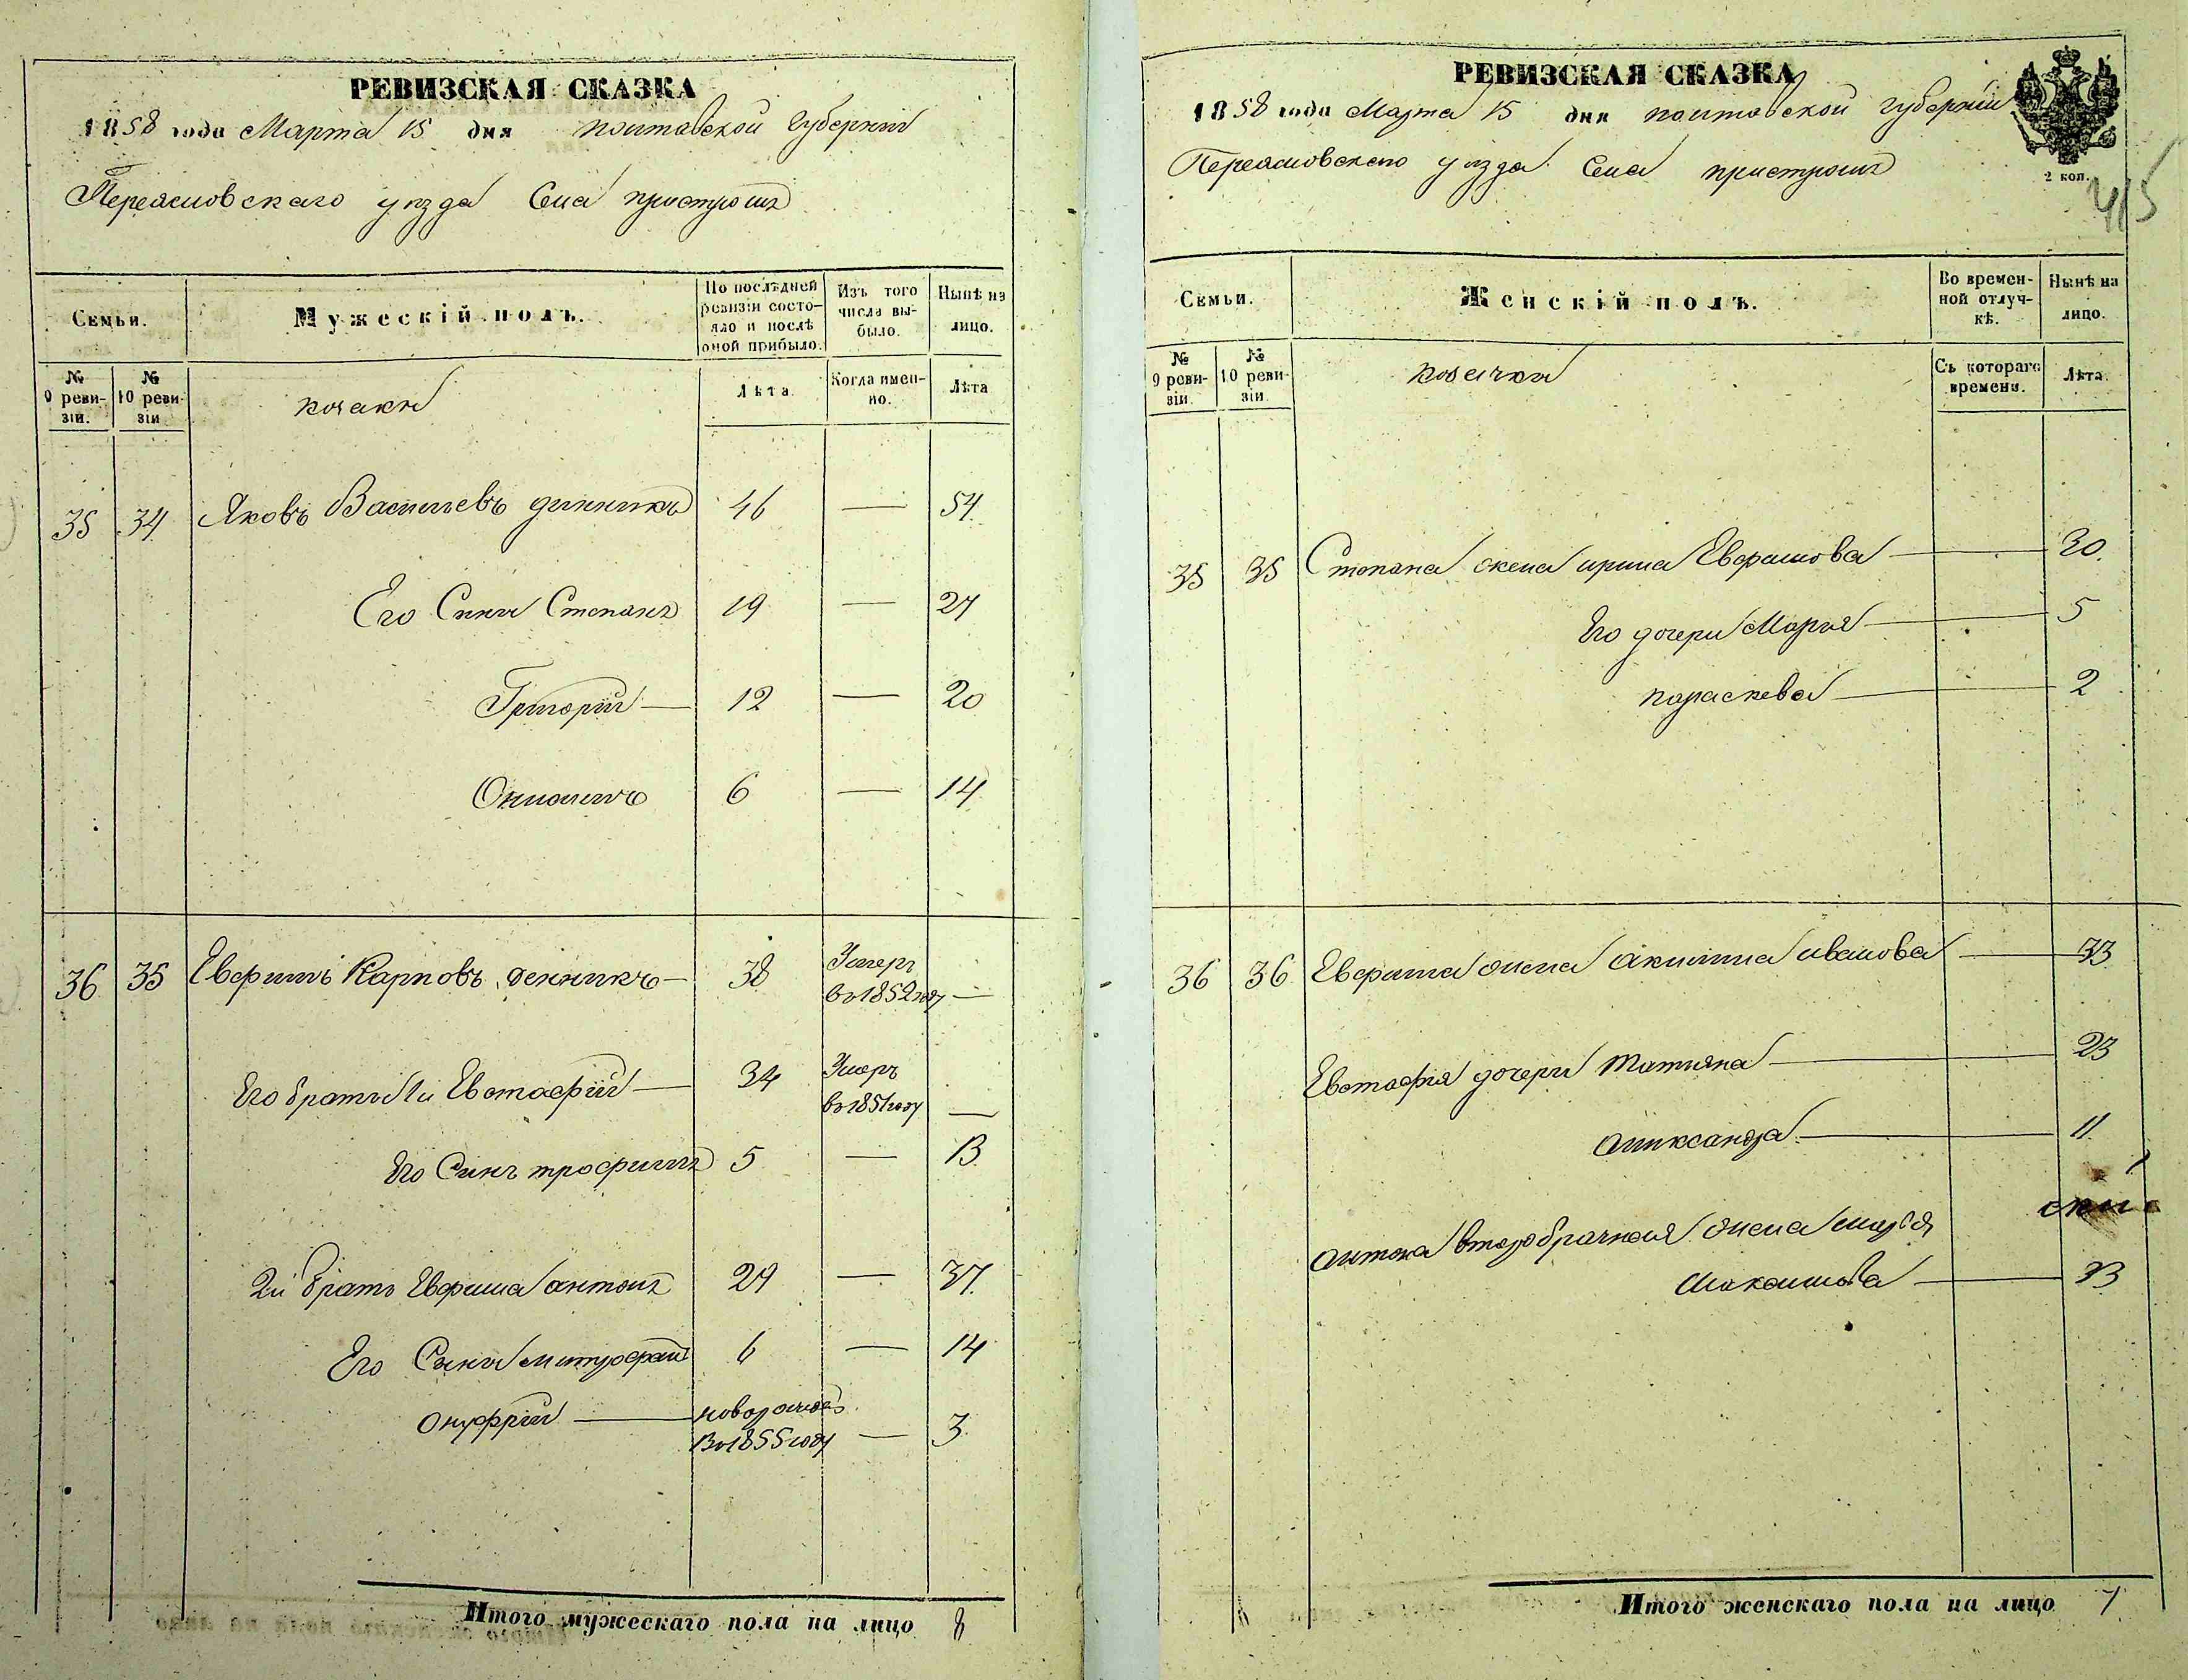 РЕВИЗСКАЯ СКАЗКА
1858 года Марта 15 дня полтавской Губернии
Переяславского уезда Села пристромъ
Семьи.
Мужескій полъ.
По послѣдней ревизіи состояло и послѣ оной прибыло.
Изъ того числа выбыло.
Нынѣ на лицо.
№ 9 ревизіи.
№ 10 ревизіи
козаки
Лѣта
Когда именно.
Лѣта
35 34 Яковъ Васильевъ динникъ 46 — 54
Его Сины Степанъ 19 — 27
Григорій — 12 — 20
6 — 14
36 35 Евфимъ Карповъ денникъ — 38 Умеръ въ 1852 году —
Его братья 1й Евстафій — 34 Умеръ въ 1851 году —
Его Синъ трофимъ 5 — 13
2й братъ Евфима антонъ 29 — 37
Его Сыны митрофанъ 6 — 14
онуфрій — новорожденъ в 1855 году — 3
Итого мужескаго пола на лицо 8
РЕВИЗСКАЯ СКАЗКА
1858 года Марта 15 дня полтавской губернии
2 коп.
415
Переяславского уезда Села пристромъ
Семьи.
Женскій полъ.
Во временной отлучкѣ.
Нынѣ на лицо.
№ 9 ревизіи.
№ 10 ревизіи
козачки
Съ котораго времени.
Лѣта.
35 35 Степана жена ирина Евфимова — 30.
Его дочери Марія — 5
параскева — 2
36 36 Евфима жена акилина иванова — 33
Евстафія дочери татияна — 23
александра — 11
антона второбрачная жена марія
Максимова — 33
Итого женскаго пола на лицо 7